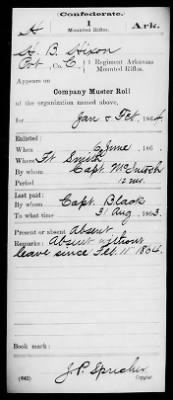 Confederate.
H 1 Ark.
Mounted Rifles.
H. B. Hixon
Pvt, Co. C, 1 Regiment Arkansas
Mounted Rifles.
Appears on
Company Muster Roll
of the organization named above,
for Jan & Feb, 1864.
Enlisted:
When 6 June, 186 .
Where Ft. Smith
By whom Capt. McIntosh
Period 12 mo.
Last paid:
By whom Capt. Black
To what time 31 Aug, 1863.
Present or absent Absent
Remarks: Absent without
leave since Feb. 15 1864.
Book mark:
J. P. Spricher
(642) Copyist.